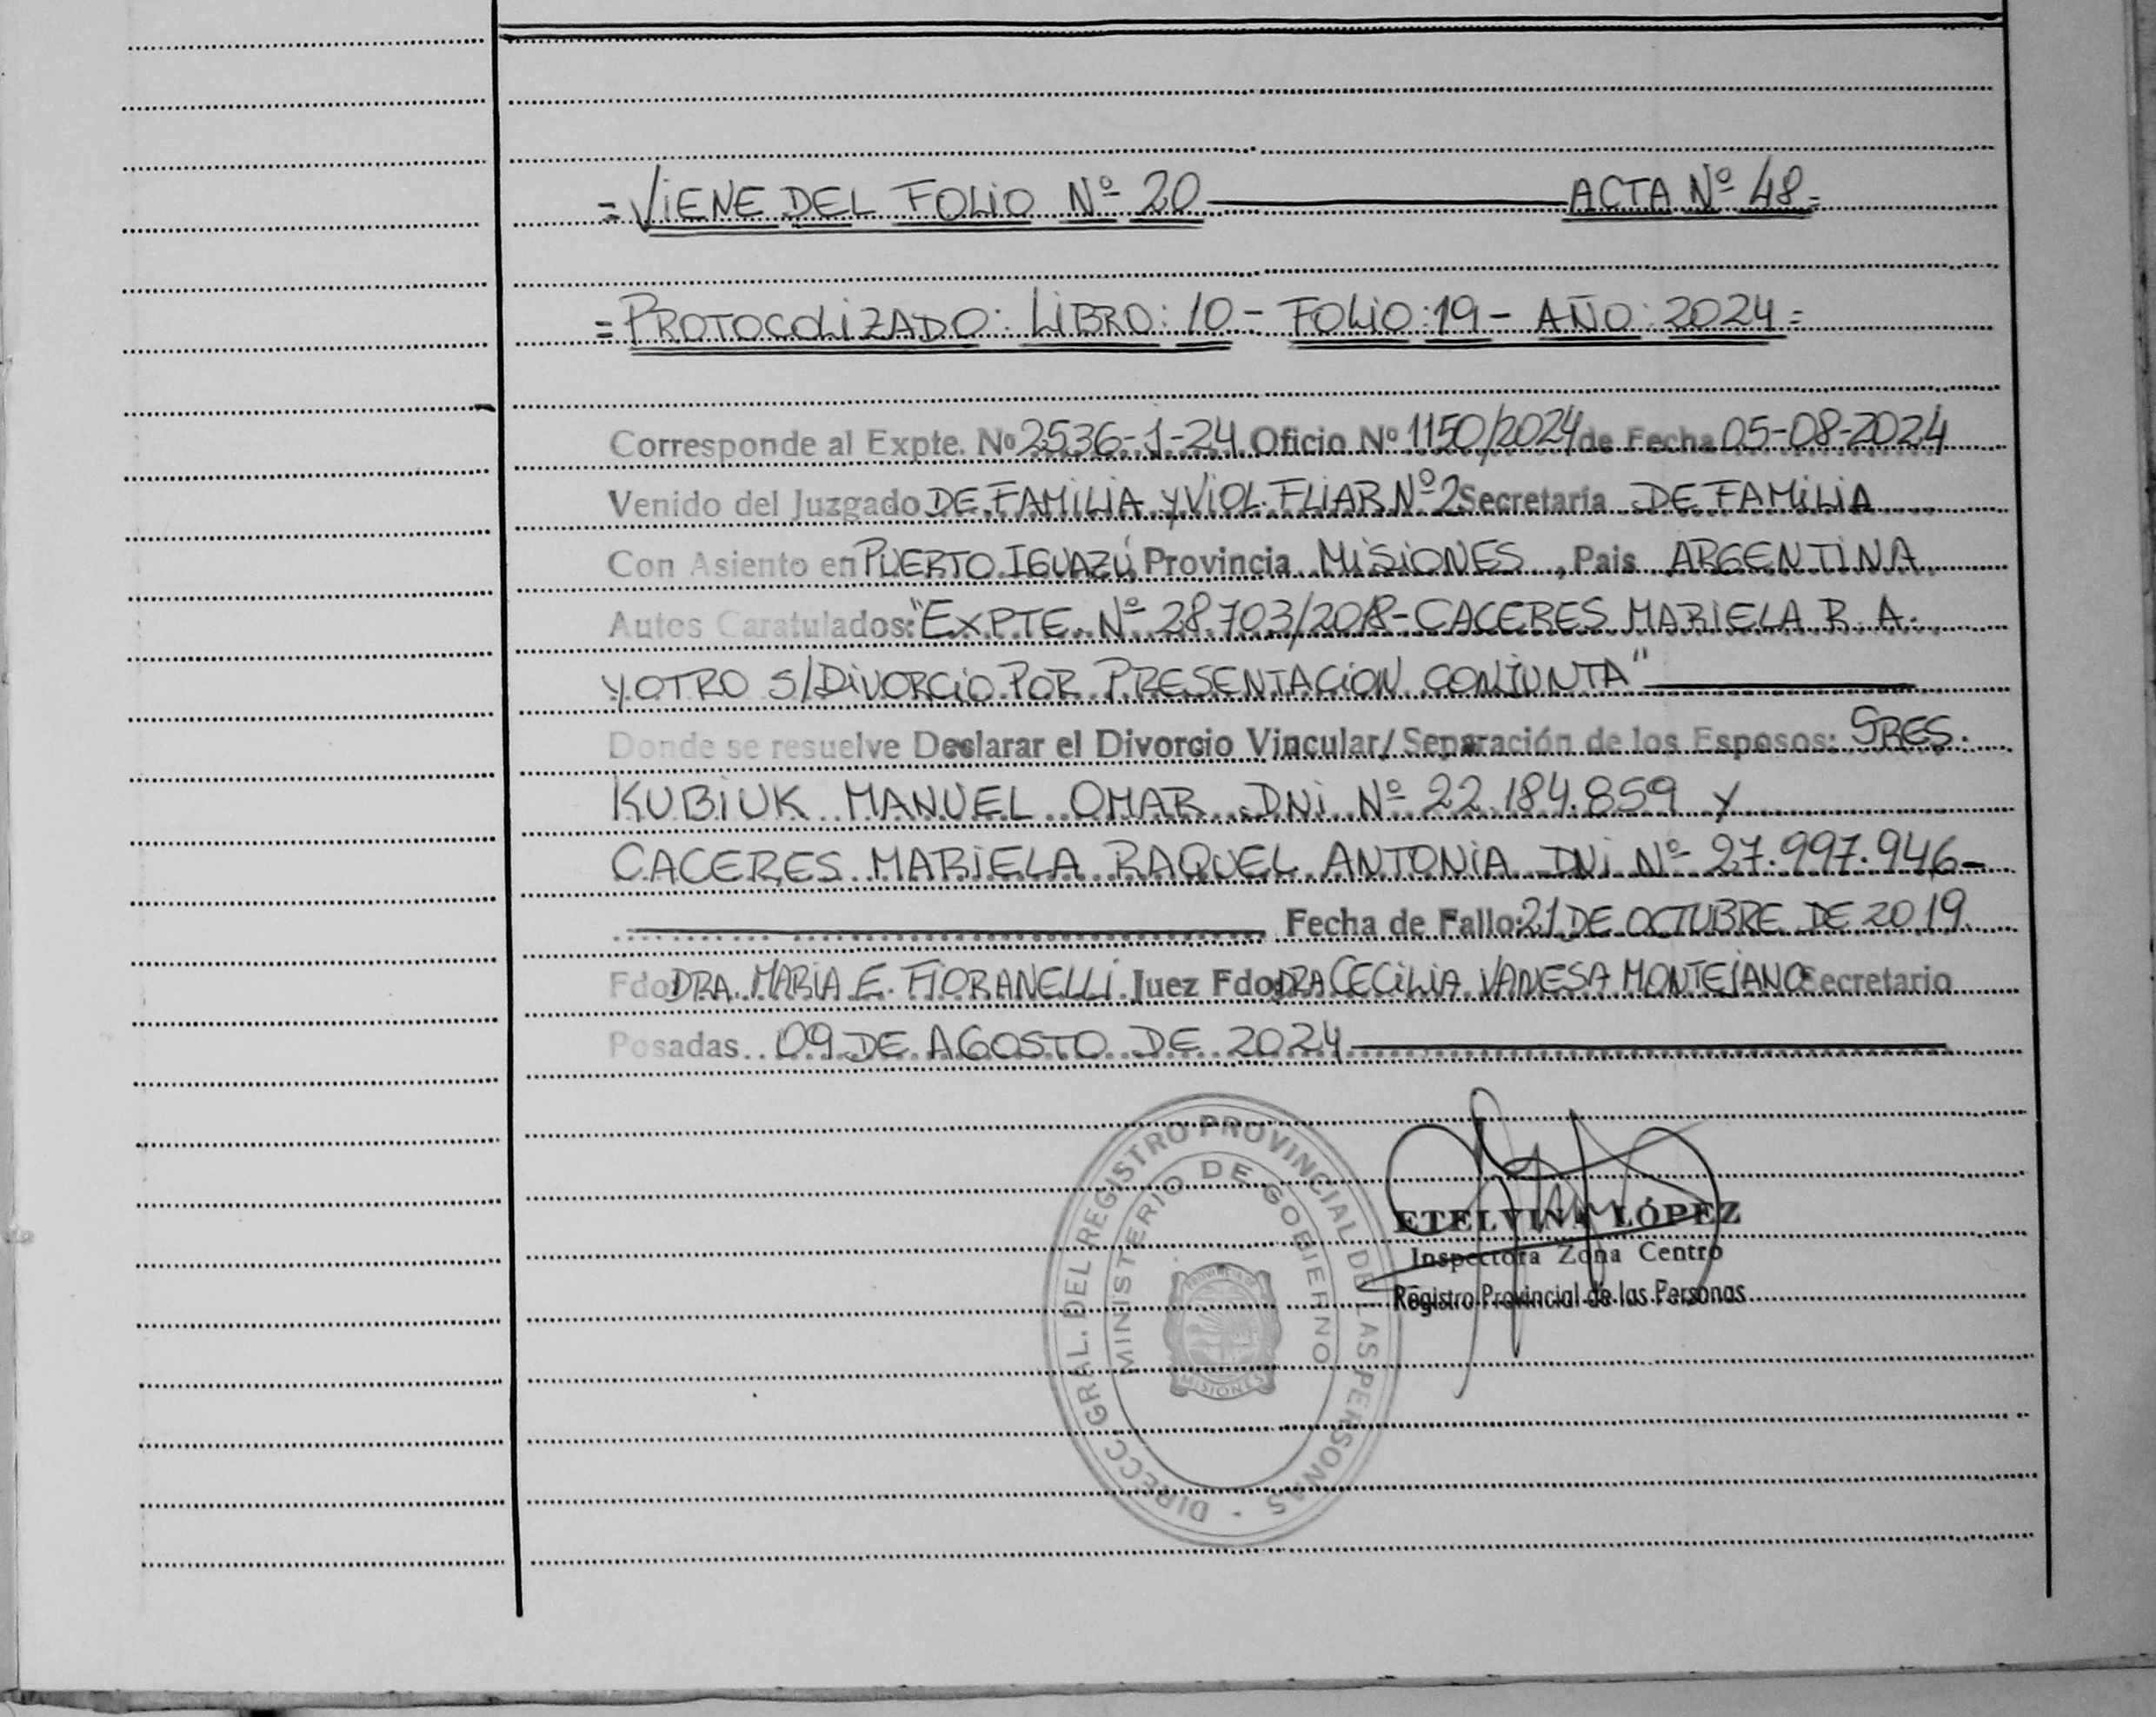 = VIENE DEL FOLIO Nº 20 ACTA Nº 48 =
= PROTOCOLIZADO: LIBRO: 10 - FOLIO: 19 - AÑO: 2024 =
Corresponde al Expte. Nº 2536-1-24 Oficio Nº 1150/2024 de Fecha 05-08-2024
Venido del Juzgado DE FAMILIA y VIOL. FLIAR Nº 2 Secretaría DE FAMILIA
Con Asiento en PUERTO IGUAZÚ, Provincia MISIONES, Pais ARGENTINA
Autos Caratulados: "EXPTE. Nº 28.703/2018 - CACERES MARIELA R. A.
y OTRO S/DIVORCIO POR PRESENTACION CONJUNTA"
Donde se resuelve Deslarar el Divorcio Vincular/ Separación de los Esposos: SRES.
KUBIUK MANUEL OMAR DNI Nº 22.184.859 y
CACERES MARIELA RAQUEL ANTONIA DNI Nº 27.997.946-
Fecha de Fallo: 21 DE OCTUBRE DE 2019.
Fdo DRA. MARIA E. FIORANELLI Juez Fdo: DRA CECILIA VANESA MONTEJANO Secretario
Posadas 09 DE AGOSTO DE 2024
DIRECC. GRAL. DEL REGISTRO PROVINCIAL DE LAS PERSONAS -
MINISTERIO DE GOBIERNO
PROVINCIA DE
MISIONES
ETELVINA LÓPEZ
Inspectora Zona Centro
Registro Provincial de las Personas